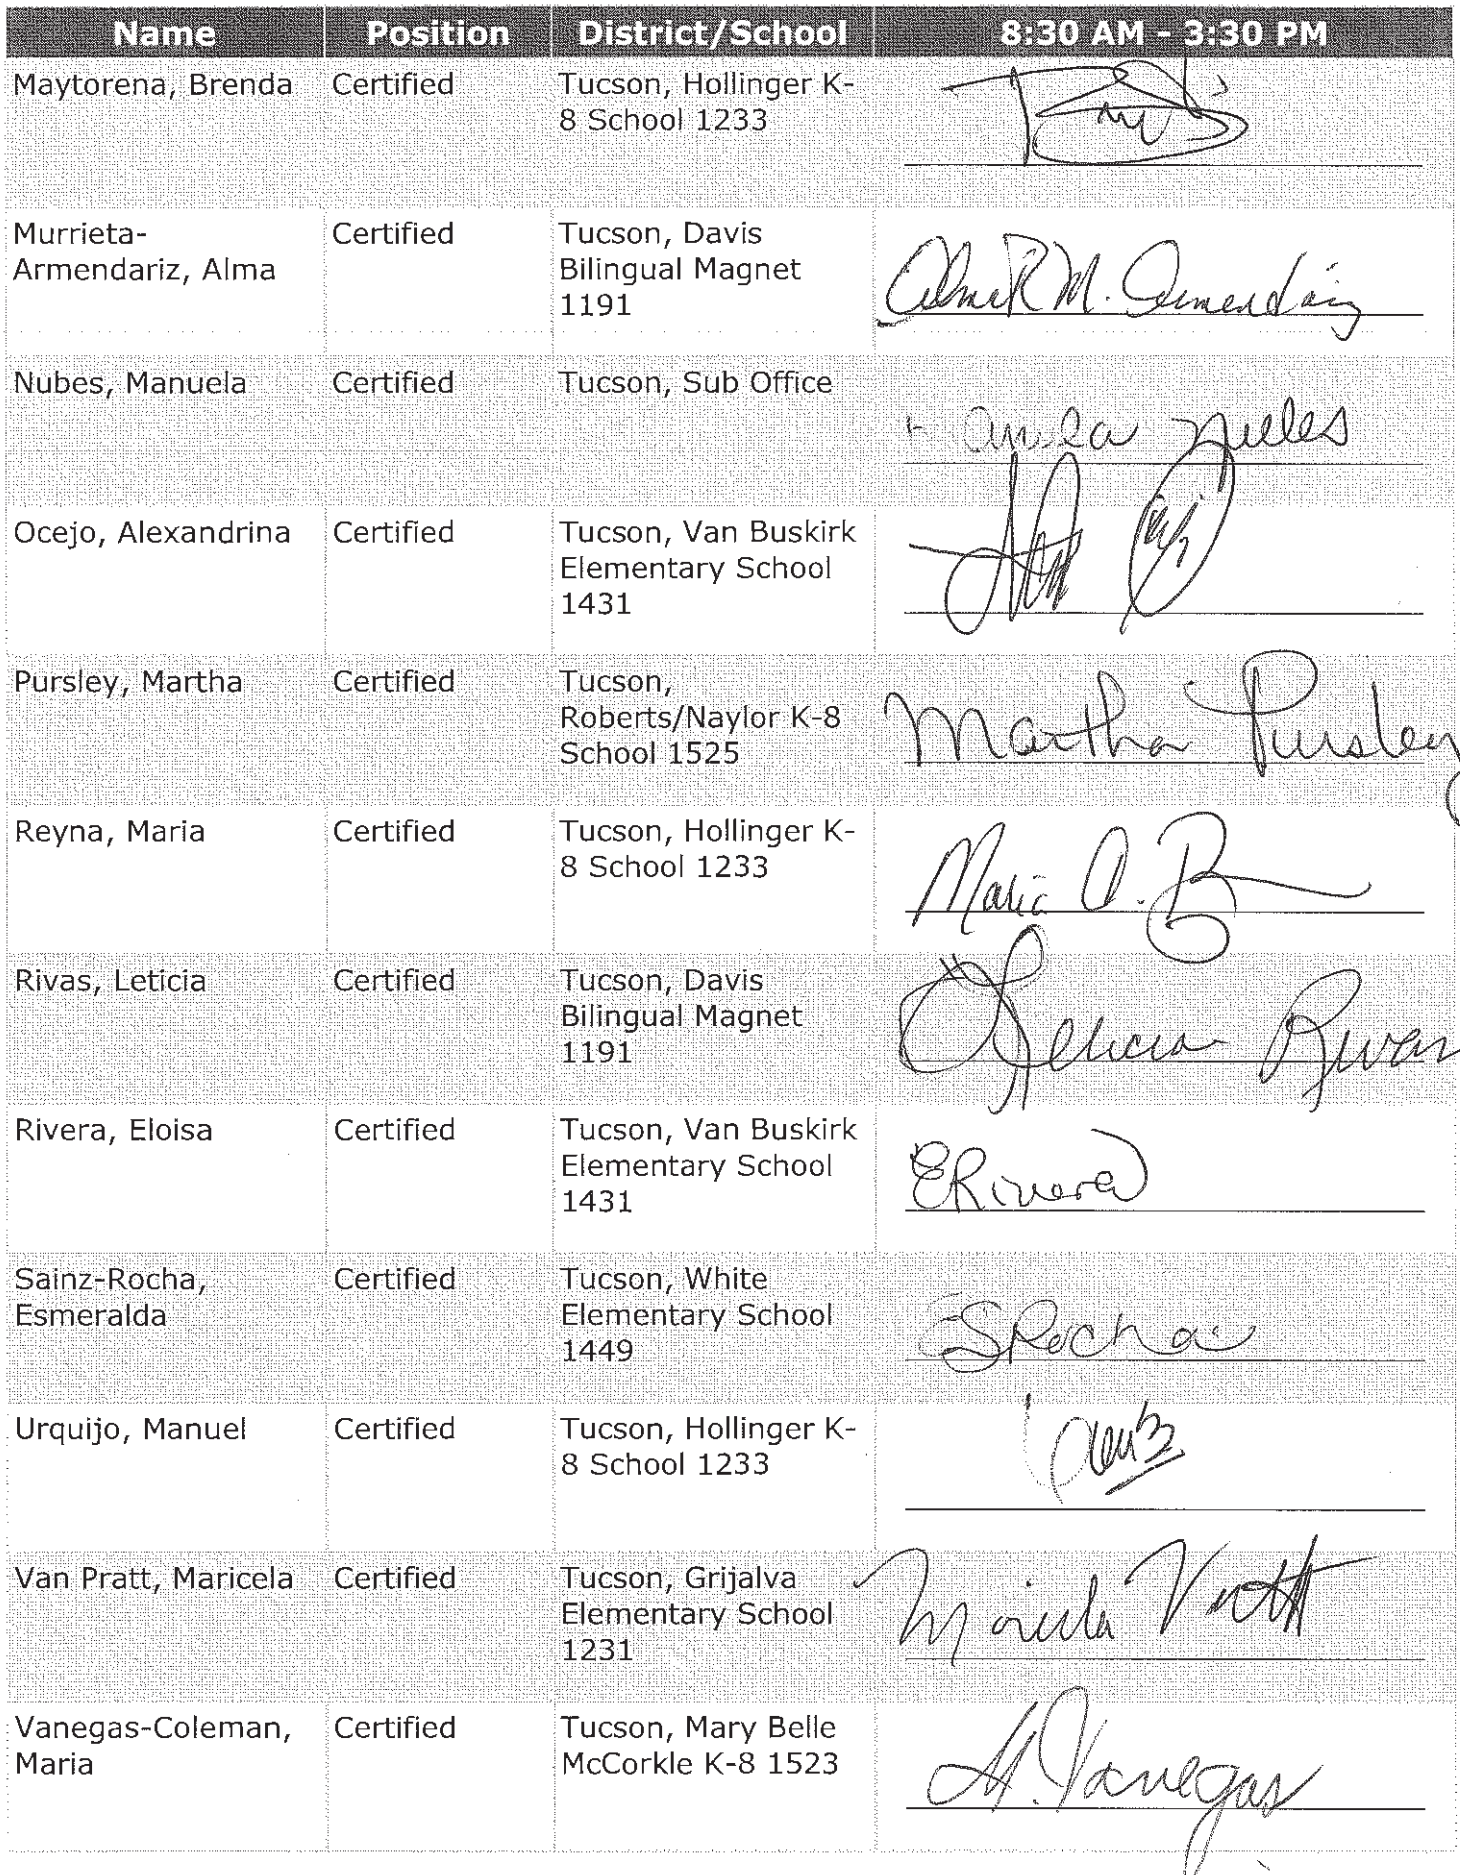 Name Position District/School 8:30 AM - 3:30 PM
Maytorena, Brenda Certified Tucson, Hollinger K-
8 School 1233
Murrieta- Certified Tucson, Davis
Armendariz, Alma Bilingual Magnet
1191
Nubes, Manuela Certified Tucson, Sub Office
Ocejo, Alexandrina Certified Tucson, Van Buskirk
Elementary School
1431
Pursley, Martha Certified Tucson,
Roberts/Naylor K-8
School 1525
Martha Pursley
Reyna, Maria Certified Tucson, Hollinger K-
8 School 1233
Maria
Rivas, Leticia Certified Tucson, Davis
Bilingual Magnet
1191
Leticia Rivas
Rivera, Eloisa Certified Tucson, Van Buskirk
Elementary School
1431
ERivera
Sainz-Rocha, Certified Tucson, White
Esmeralda Elementary School
1449
ESRocha
Urquijo, Manuel Certified Tucson, Hollinger K-
8 School 1233
Van Pratt, Maricela Certified Tucson, Grijalva
Elementary School
1231
Vanegas-Coleman, Certified Tucson, Mary Belle
Maria McCorkle K-8 1523
M. Vanegas